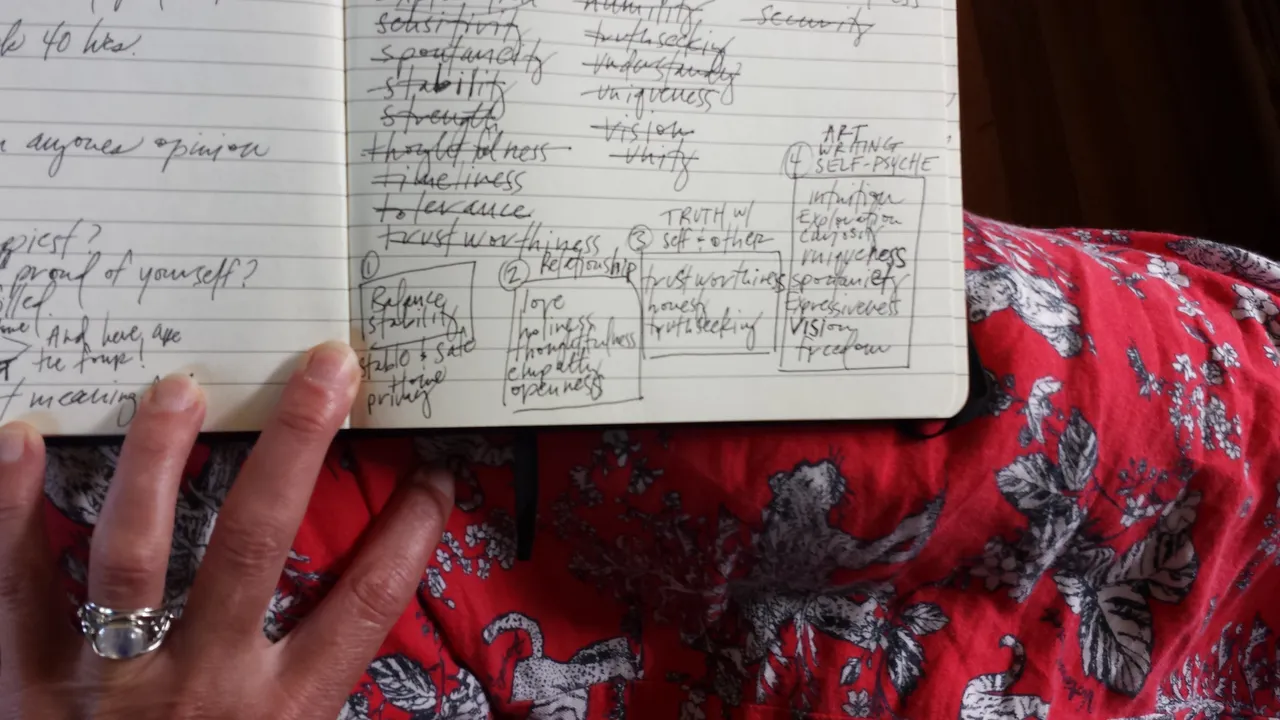 40 hrs.
anyones opinion
piest?
proud of yourself?
And here, are
the four!
meaning
sensitivity
spontaneity
stability
strength
thoughtfulness
timeliness
tolerance
trustworthiness
humility
truthseeking
understandg
uniqueness
vision
unity
security
①
Balance
stability
stable & safe
privacy
② Relationship
love
holiness
thoughtfulness
empathy
openness
③ TRUTH W/
self + other
trustworthiness
honesty
truthseeking
④ ART
WRITING
SELF-PSYCHE
intuition
Exploration
Curiosity
uniqueness
spontaniety
Expressiveness
Vision
freedom